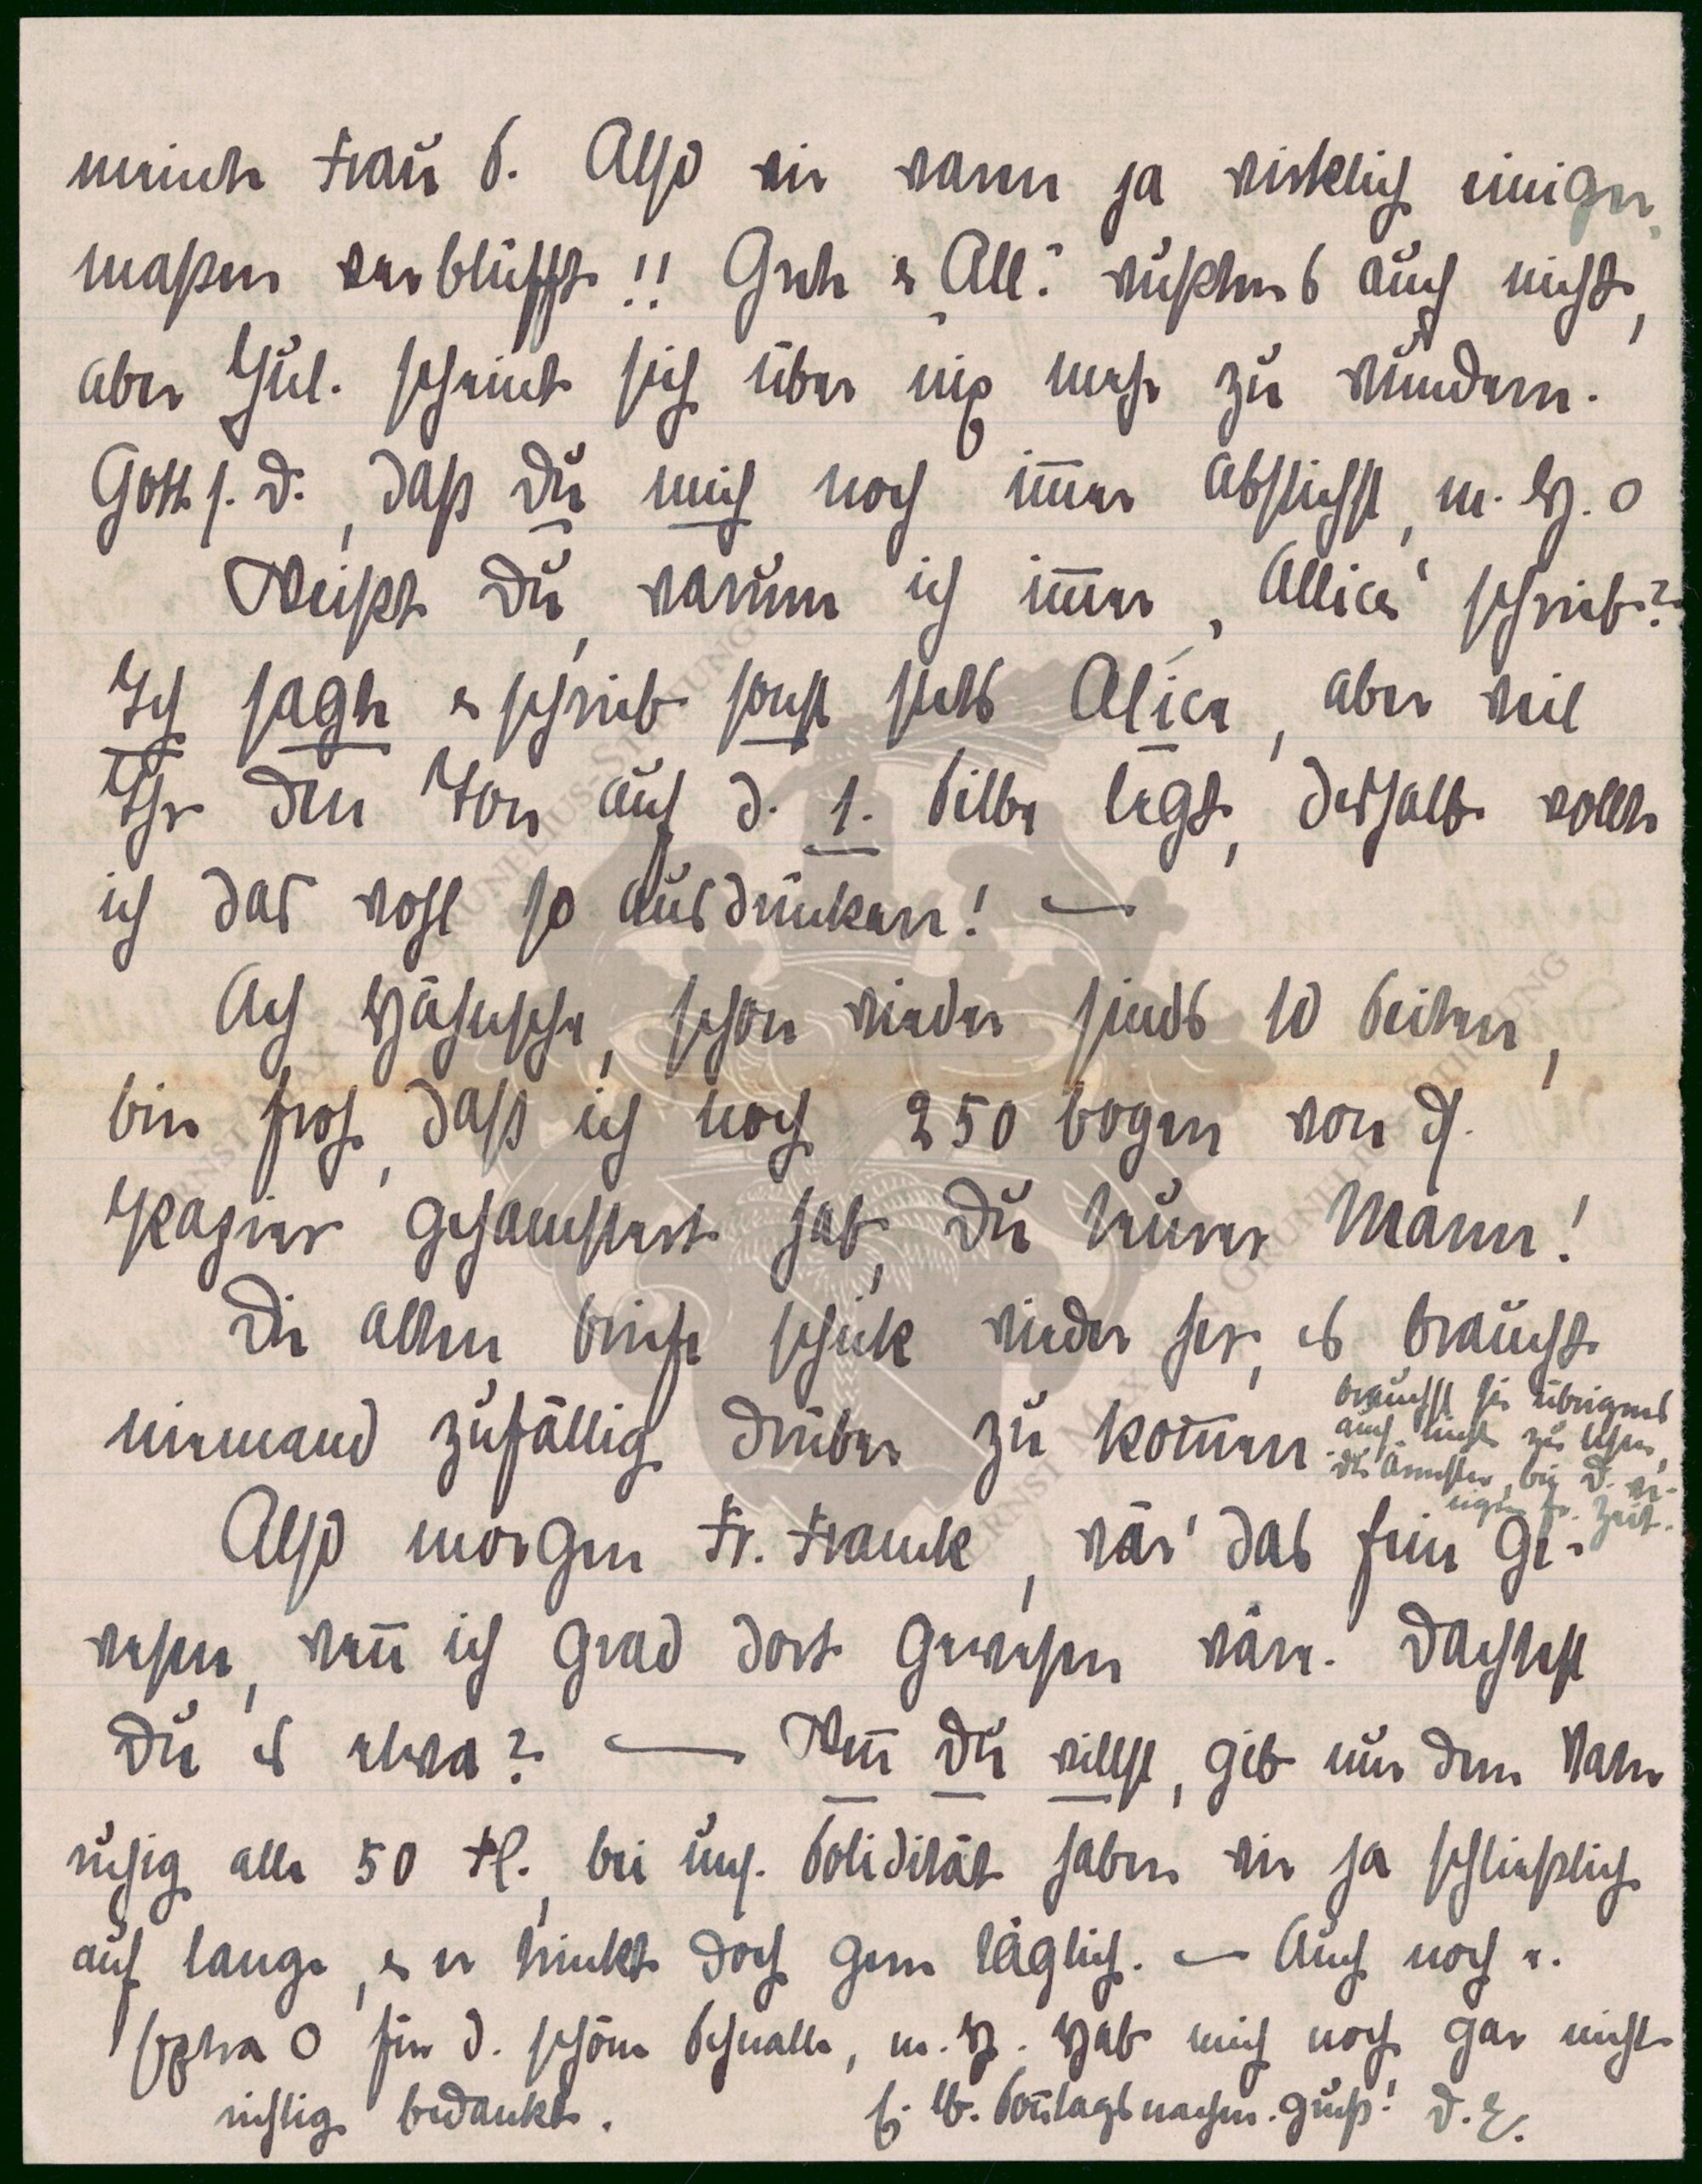 meinte Frau S. Also wir waren ja wirklich einiger-
maßen verblüfft!! Grete & All. wußten's auch nicht,
aber Jul. scheint sich über nix mehr zu wundern.
Gott s. D., daß Du mich noch im̅er abstichst, m. H. O
Weißt Du, warum ich im̅er „Allice" schrieb?
Ich sagte & schrieb sonst stets Alice, aber weil
Ihr den Ton auf d. 1. Silbe legt, deshalb wollte
ich das wohl so ausdrücken! —
Ach Hähnsche, schon wieder sind's 10 Seiten,
bin froh, daß ich noch 250 Bogen von ds.
Papier gehamstert hab, Du teurer Mann!
Die alten Briefe schick wieder her, es braucht
niemand zufällig drüber zu kom̅en.
brauchst sie übrigens
auch nicht zu lesen,
Du Ärmster, bei D. we-
nigen fr. Zeit.
Also morgen Fr. Franck, wär' das fein ge-
wesen, wen̅ ich grad dort gewesen wäre. Dachtest
Du es etwa? — Wen̅ Du willst, gib nur dem Vater
ruhig alle 50 Fl., bei uns. Solidität haben wir ja schließlich
auf lange, & er trinkt doch gern täglich. — Auch noch e.
Extra O für d. schöne Schnalle, m. H. Hab mich noch gar nicht
richtig bedankt.
E. lb. Son̅tagsnachm. gruß! D. E.